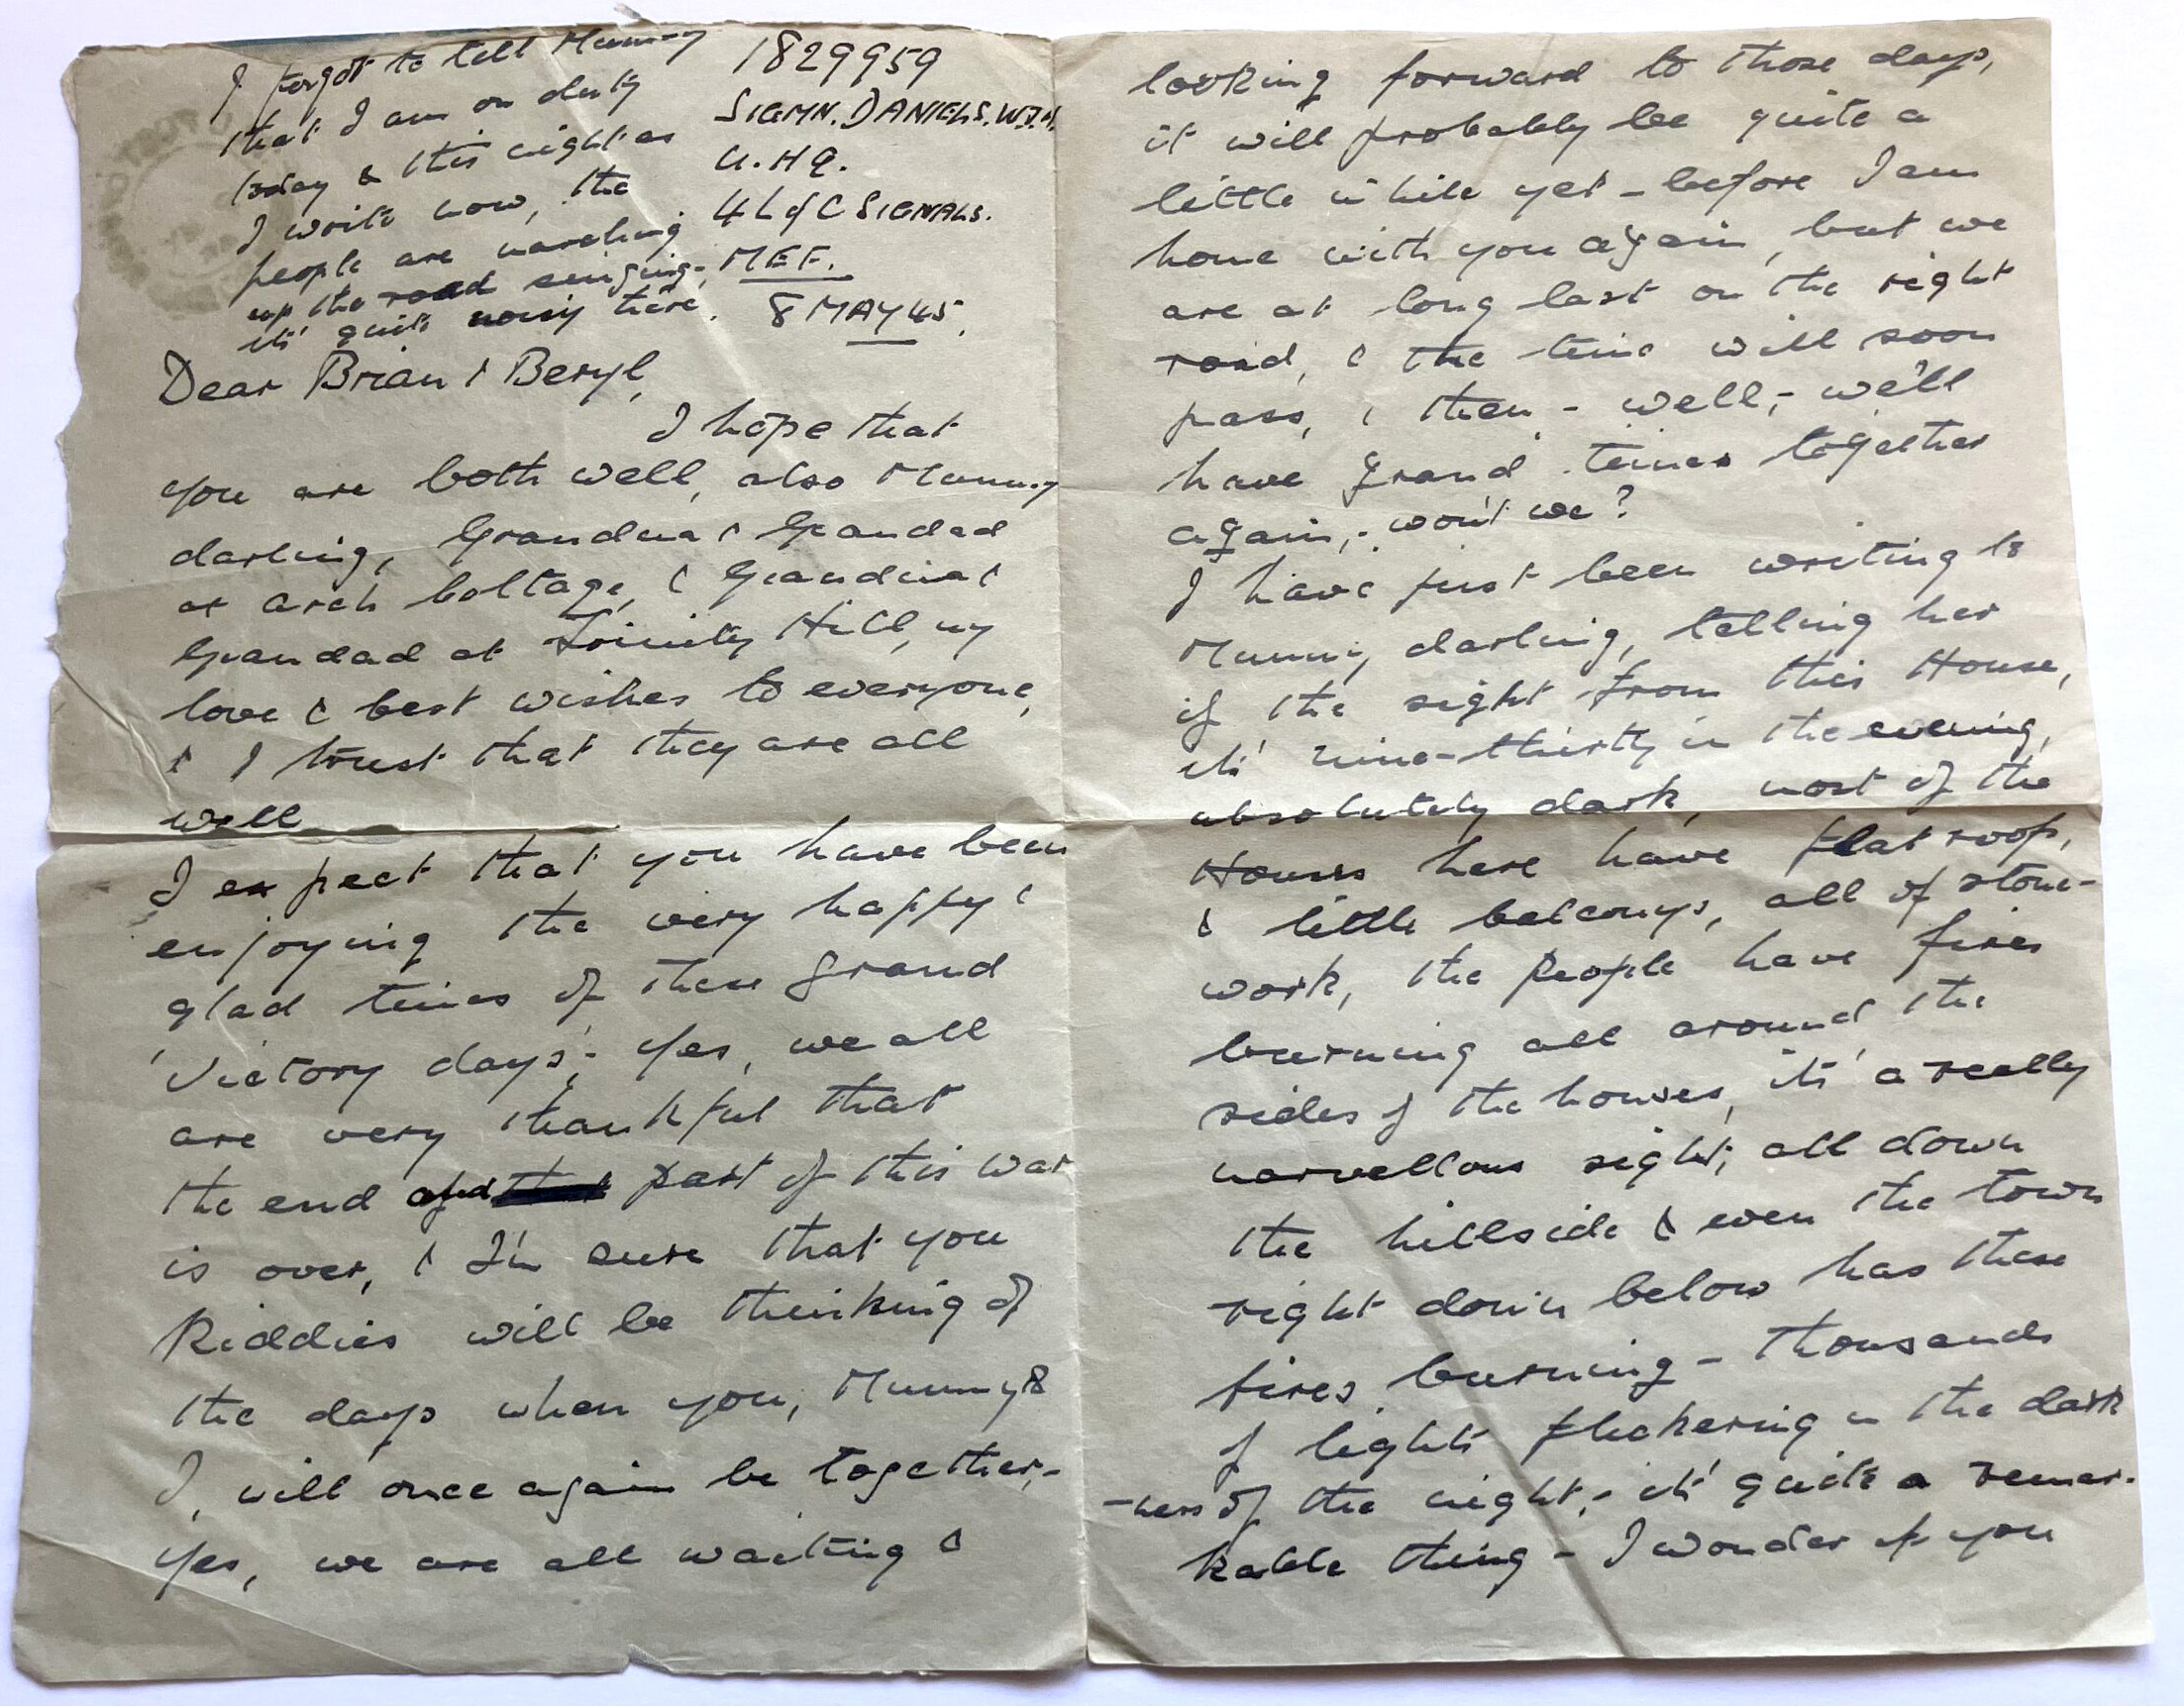 I forgot to tell Mummy
that I am on duty
today & this night as
I write now, the
people are marching
up the road singing,
it's quite noisy here.
1829959
SIGMN. DANIELS. W.J.
U.H.Q.
4 L of C SIGNALS.
MEF.
8 MAY 45.
Dear Brian & Beryl,
I hope that
you are both well, also Mummy
darling, Grandma & Grandad
at Arch Cottage, & Grandma &
Grandad at Trinity Hill, my
love & best wishes to everyone,
& I trust that they are all
well
I expect that you have been
enjoying the very happy &
glad times of these grand
'Victory days'; Yes, we all
are very thankful that
the end of part of this war
is over, & I'm sure that you
Kiddies will be thinking of
the days when you, Mummy &
I, will once again be together,-
Yes, we are all waiting &
looking forward to those days,
it will probably be quite a
little while yet - before I am
home with you again, but we
are at long last on the right
road, & the time will soon
pass, & then - well, - we'll
have grand times together
again, - won't we?
I have just been writing to
Mummy darling, telling her
of the sight from this House,
it's nine-thirty in the evening,
absolutely dark, most of the
Houses here have flat roofs,
& little balconys, all of stone-
work, the people have fires
burning all around the
sides of the houses, it's a really
marvellous sight, all down
the hillside & even the town
right down below has these
fires burning - thousands
of lights flickering in the dark
-ness of the night, - it's quite a remar-
kable thing - I wonder if you